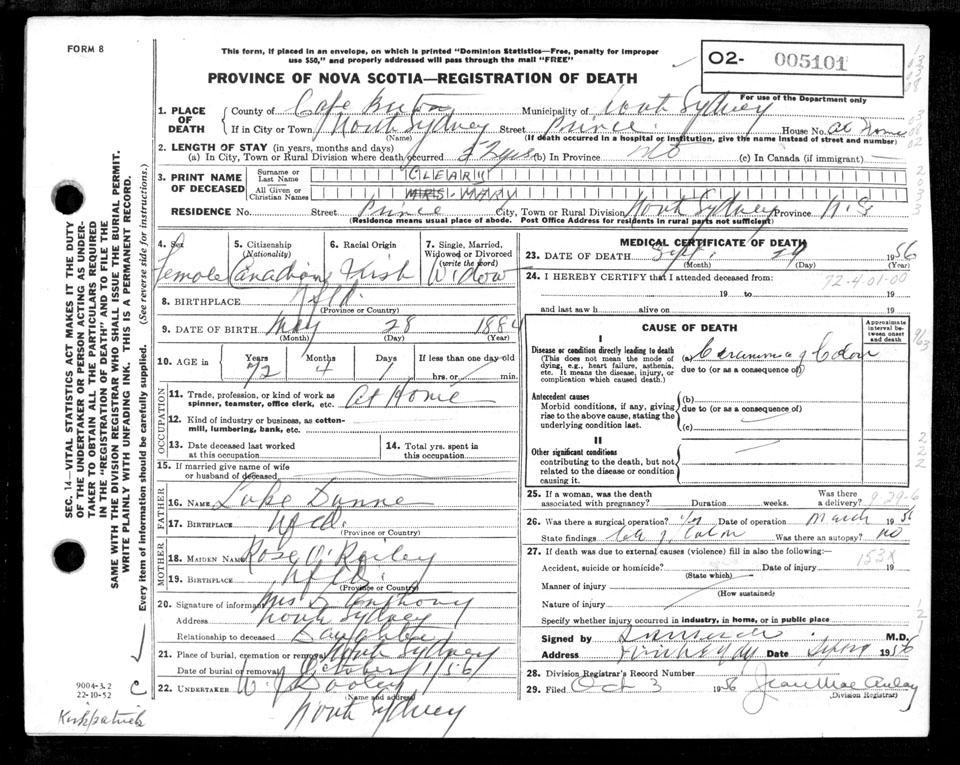 FORM 8
This form, if placed in an envelope, on which is printed "Dominion Statistics—Free, penalty for improper
use $50," and properly addressed will pass through the mail "FREE"
PROVINCE OF NOVA SCOTIA—REGISTRATION OF DEATH
02- 005101
For use of the Department only
1. PLACE OF DEATH
County of Cape Breton Municipality of North Sydney
If in City or Town North Sydney Street Prince House No. At Home
(Name) (If death occurred in a hospital or institution, give the name instead of street and number)
2. LENGTH OF STAY (in years, months and days)
(a) In City, Town or Rural Division where death occurred 52 yrs (b) In Province (c) In Canada (if immigrant)
3. PRINT NAME OF DECEASED
Surname or Last Name CLEARY
All Given or Christian Names MRS. MARY
RESIDENCE No. Street Prince City, Town or Rural Division North Sydney Province N.S
(Residence means usual place of abode. Post Office Address for residents in rural parts not sufficient)
4. Sex Female
5. Citizenship (Nationality) Canadian
6. Racial Origin Irish
7. Single, Married, Widowed or Divorced (write the word) Widow
8. BIRTHPLACE Nfld.
(Province or Country)
9. DATE OF BIRTH May 28 1884
(Month) (Day) (Year)
10. AGE in Years 72 Months 4 Days 1 If less than one day old
hrs. or min.
OCCUPATION
11. Trade, profession, or kind of work as spinner, teamster, office clerk, etc. At Home
12. Kind of industry or business, as cotton-mill, lumbering, bank, etc.
13. Date deceased last worked at this occupation
14. Total yrs. spent in this occupation
15. If married give name of wife or husband of deceased
FATHER
16. NAME Luke Dunne
17. BIRTHPLACE Nfld.
MOTHER
18. MAIDEN NAME Rose O'Reiley
19. BIRTHPLACE Nfld.
(Province or Country)
20. Signature of informant Mrs Anthony
Address North Sydney
Relationship to deceased Daughter
21. Place of burial, cremation or removal North Sydney
Date of burial or removal October 1 1956
22. UNDERTAKER W. J. Dooley
(Name and address)
North Sydney
MEDICAL CERTIFICATE OF DEATH
23. DATE OF DEATH Sept. 29 1956
(Month) (Day) (Year)
24. I HEREBY CERTIFY that I attended deceased from: 72-4-01-00
19 to 19
and last saw h alive on 19
CAUSE OF DEATH
Approximate interval between onset and death
I
Disease or condition directly leading to death
(This does not mean the mode of dying, e.g., heart failure, asthenia, etc. It means the disease, injury, or complication which caused death.)
(a) Carcinoma of Colon
due to (or as a consequence of)
Antecedent causes
Morbid conditions, if any, giving rise to the above cause, stating the underlying condition last.
(b)
due to (or as a consequence of)
(c)
II
Other significant conditions
contributing to the death, but not related to the disease or condition causing it.
25. If a woman, was the death associated with pregnancy? Duration weeks. Was there a delivery? 9-29-6
26. Was there a surgical operation? Yes Date of operation March 1956
State findings Ca of Colon Was there an autopsy? no
27. If death was due to external causes (violence) fill in also the following:—
Accident, suicide or homicide? Date of injury 153X 19
(State which)
Manner of injury
(How sustained)
Nature of injury
Specify whether injury occurred in industry, in home, or in public place
Signed by M.D.
Address North Sydney Date 1956
28. Division Registrar's Record Number
29. Filed Oct 3 1956 Jean MacAulay
(Division Registrar)
SEC. 14—VITAL STATISTICS ACT MAKES IT THE DUTY
OF THE UNDERTAKER OR PERSON ACTING AS UNDER-
TAKER TO OBTAIN ALL THE PARTICULARS REQUIRED
IN THE "REGISTRATION OF DEATH" AND TO FILE THE
SAME WITH THE DIVISION REGISTRAR WHO SHALL ISSUE THE BURIAL PERMIT.
WRITE PLAINLY WITH UNFADING INK. THIS IS A PERMANENT RECORD.
Every item of information should be carefully supplied. (See reverse side for instructions.)
9004-3.2
22-10-52
C
Kirkpatrick